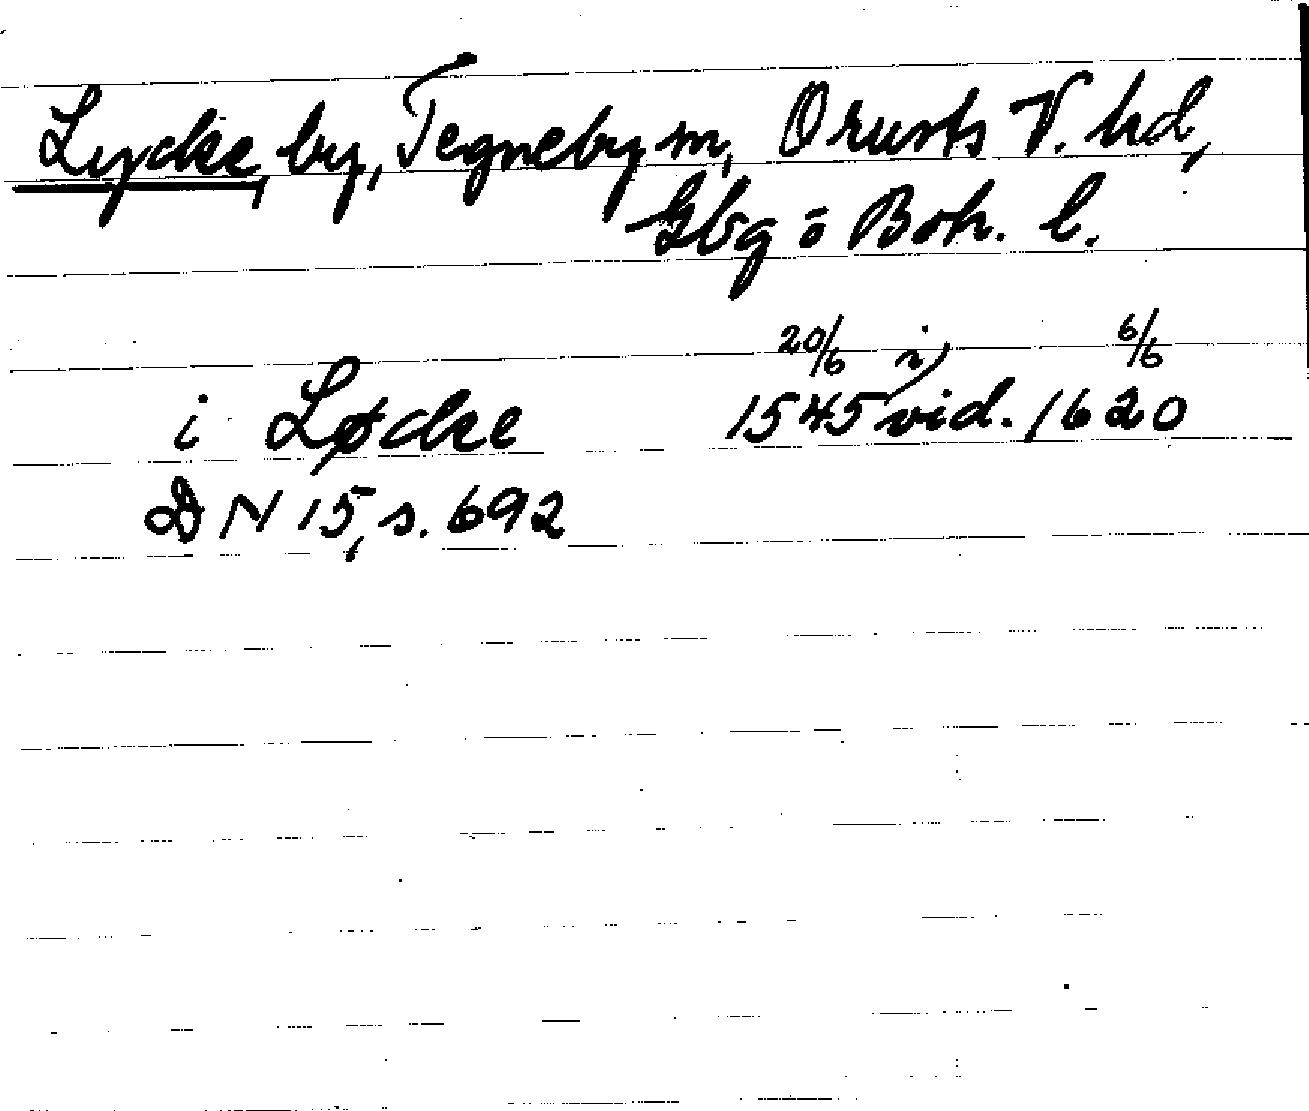 Lycke, by, Tegneby sn, Orusts V. hd,
Gbg o Boh. l.
i Løcke 20/6 1545 i vid. 6/6 1620
DN 15, s. 692